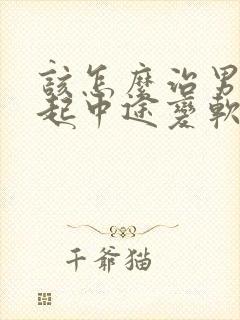 该怎麼治男
起中途变軟
千爺猫